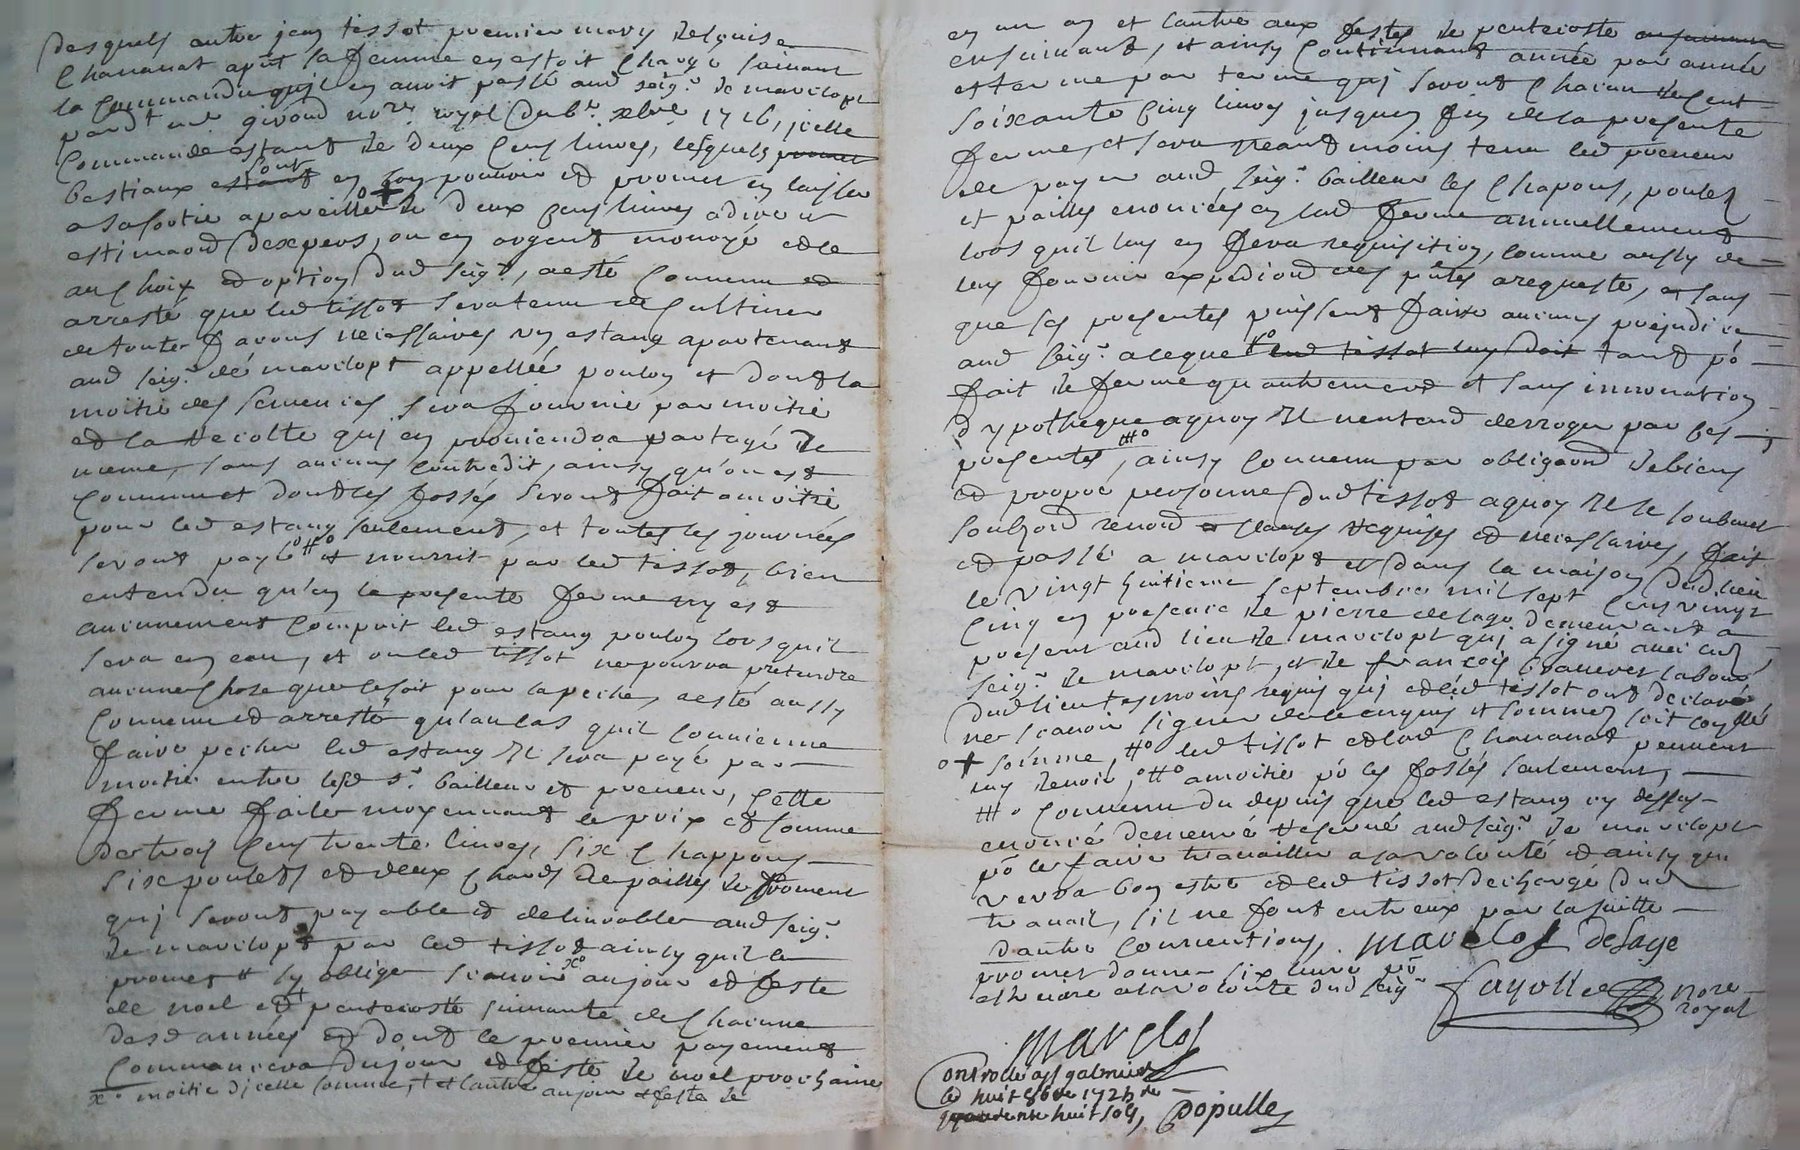 desquels autre jean tissot premier mary de louise
Chavanat apût la femme en estoit Charge suivant
la Commande qu'il en avoit passé aud seigr. de marclopt
pardt me girond nore. royal du 6e. xbre. 1716, jcelle
Commande estant de deux Cens livres, lesquels promet
bestiaux estant sont en son pouvoir et promet en laisser
a sa sortie a pareille o+ de deux Cens livres a dire et
estimaon dexpers, ou en argent monoyé et le
au Choix et option dud seigr., a esté Convenu et
arresté que led tissot sera tenu de Cultiver
de toutes façons necessaires un estang apartenant
aud seigr. de marclopt appellée poulon et dont la
moitié des semences sera fournie par moitié
et la recolte qui en proviendra partagé de
meme, sans aucuns Contredit, ainsy qu'on est
Convenu et dont les fossés seront fait a moitié
pour led estang seulement, et toutes les journées
seront payé o#o et nourrit par led tissot, bien
entendu qu'en la presente ferme ny est
aucunement Compris led estang poulon lors quil
sera en eau, et ou led tissot ne pourra pretendre
aucunne Chose que ce soit pour la peche, a esté aussy
Convenu et arresté qu'au cas quil Convienne
faire pecher led estang Il sera payé par
moitié entre lesd sr. bailleur et preneur, Cette
ferme faite moyennant le prix et somme
de trois Cens trente livres, six Chappons
six poulets et deux Chards de pailles de froment
quj seront payable et delivrable aud seigr.
de marclopt par led tissot ainsy quil le
promet et sy oblige scavoir xo aujour et feste
de noel et pentecoste suivante de Chacune
desd années et dont le premier payement
Commancera du jour et feste de noel prochaine
xo moitie djcelle somme, et l'autre aujour et feste de
en un an et lautre aux festes de pentecoste
ensuivant, et ainsy Continuant année par année
et terme par terme quj seront Chacun de Cent
soixante Cinq livres jusques fin de la presente
ferme, et sera neantmoins tenu led preneur
de payer aud seigr. bailleur les Chapons, poulets
et pailles enoncées en lad ferme annuellement
lors quil luy en fera requisition, comme aussy de
luy fournir expediond des pntes a requeste, et sans
que les presentes puissent faire aucuns prejudice
aud seigr. a ceque led tissot luy doit tant po
fait de ferme qu autrement et sans innovation
d ypotheque a quoy Il nentend derroger par ces
presentes #o, ainsy convenu par obligaond de biens
et propre personne dud tissot a quoy Il se soubmet
soubzond renond et clauses requises et necessaires, fait
et passé a marclopt et dans la maison dud lieu
le vingt huitieme septembre mil sept Cens vingt
Cinq en presence de pierre delage demeurant a
present aud lieu de marclopt quj a signé avec led
seigr. de marclopt, et de françois labour
dud lieu tesmoins requis quj et led tissot ont declaré
ne scavoir signer de ce enquis et sommez soit controllé
o + somme, #o led tissot et lad Chavanat peuvent
luy devoir, o#o a moitié po les fossés seulement,
#o Convenu du depuis que led estang cy dessus
enoncé demeure reservé aud seigr. de marclopt
po le faire travailler a sa volonté et ainsy quil
verra bon estre et led tissot decharge dud
travail, sil ne font entreux par la suitte
dautre Conventions, marclopt delage
promet donner six livres po
a la volonte dud seigr Fayolle nore
royal
marclopt
Controllé a st galmier
le huit 8bre 1725
quarente huit sols, Dopulle